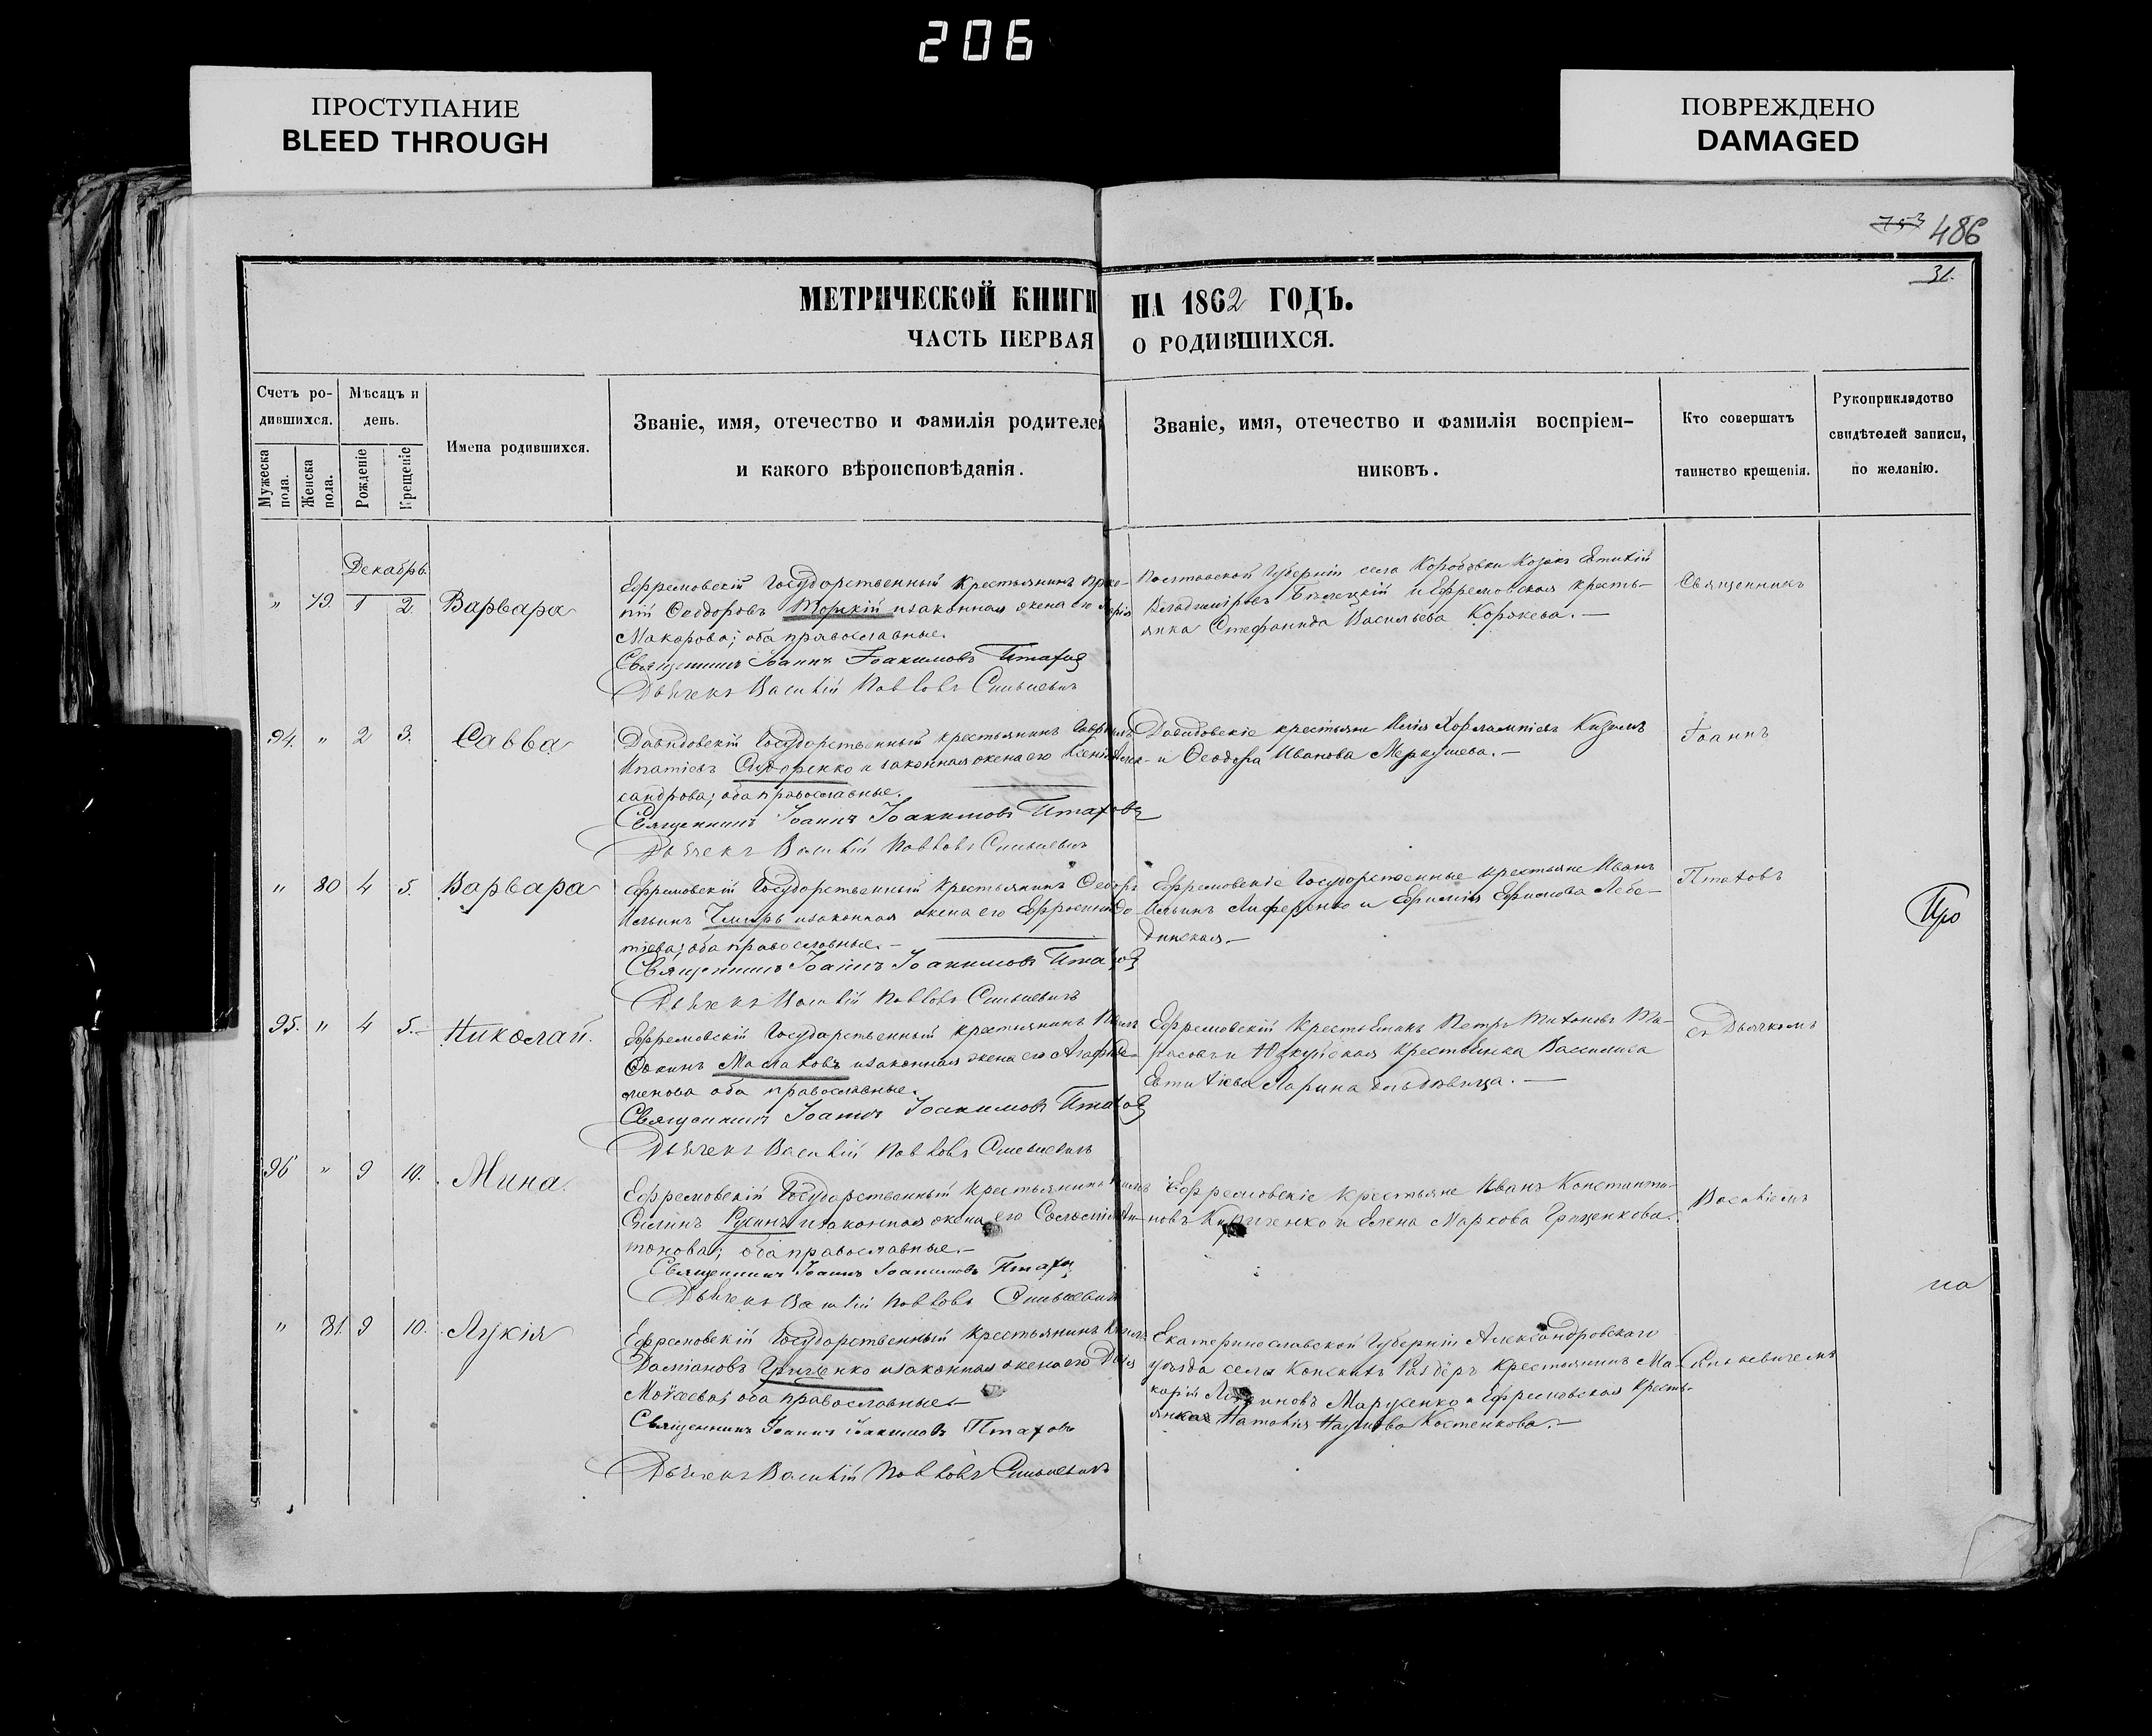 206
ПРОСТУПАНИЕ
BLEED THROUGH
ПОВРЕЖДЕНО
DAMAGED
753 486
31.
МЕТРИЧЕСКОЙ КНИГИ НА 1862 ГОДЪ.
ЧАСТЬ ПЕРВАЯ О РОДИВШИХСЯ.
Счетъ ро-
дившихся.
Мужеска
пола.
Женска
пола.
Мѣсяцъ и
день.
Рожденіе
Крещеніе
Имена родившихся.
Званіе, имя, отечество и фамилія родителей
и какого вѣроисповѣданія.
Званіе, имя, отечество и фамилія воспріем-
никовъ.
Кто совершатъ
таинство крещенія.
Рукоприкладство
свидѣтелей записи,
по желанію.
Декабрь.
" 79. 1 2. Варвара
Ефремовскій Государственный крестьянинъ Проко-
пій Ѳеодоровъ и законная жена его Марія
Макарова; оба православные.
Священникъ Іоаннъ Іоакимовъ Птаховъ
Дьячекъ Василій Павловъ Синькевичъ
Полтавской Губерніи села Коробовки Козакъ Евтихій
Владиміровъ Белецкій и Ефремовская кресть-
янка Стефанида Васильева Корякева.—
Священникъ
94. " 2 3. Савва
Давидовскій Государственный крестьянинъ Гавріилъ
Игнатіевъ Сидоренко и законная жена его Ксенія Алек-
сандрова; оба православные.
Священникъ Іоаннъ Іоакимовъ Птаховъ
Дьячекъ Василій Павловъ Синькевичъ
Давидовскіе крестьяне Илія Харлампіевъ
и Ѳеодора Иванова Меркушева.—
Іоаннъ
" 80 4 5. Варвара
Ефремовскій Государственный крестьянинъ Ѳедоръ
Ильинъ и законная жена его Ефросинія До-
тіева; оба православные.—
Священникъ Іоаннъ Іоакимовъ Птаховъ
Дьячекъ Василій Павловъ Синькевичъ
Ефремовскіе Государственные крестьяне Иванъ
Ильинъ Лиференко и Ефимія Ефимова Лебе-
динская.—
Птаховъ
Про
95. " 4 5.— Николай.
Ефремовскій Государственный крестьянинъ
Ѳокинъ Маслаковъ и законная жена его Агафія Се-
менова оба православные.
Священникъ Іоаннъ Іоакимовъ Птаховъ
Дьячекъ Василій Павловъ Синькевичъ
Ефремовскій крестьянинъ Петръ Тихоновъ Та-
расовъ и крестьянка Василиса
Евтихіева Ларина дѣвица.—
съ Дьячкомъ
96 " 9 10. Мина.
Ефремовскій Государственный крестьянинъ
и законная жена его Соломонія Ан-
тонова; оба православные.—
Священникъ Іоаннъ Іоакимовъ Птаховъ
Дьячекъ Василій Павловъ Синькевичъ
Ефремовскіе крестьяне Иванъ Константи-
новъ Кириченко и Елена Маркова Гриценкова.
Василіемъ
на
" 81. 9 10. Лукія
Ефремовскій Государственный крестьянинъ
Даміановъ Гриценко и законная жена его
Моѵсеева; оба православные.—
Священникъ Іоаннъ Іоакимовъ Птаховъ
Дьячекъ Василій Павловъ Синькевичъ
Екатеринославской Губерніи Александровскаго
уѣзда села Конскихъ Раздоръ крестьянинъ Ма-
карій Марусенко и Ефремовская кресть-
янка Наталія Наумова Костенкова.—
Синькевичемъ